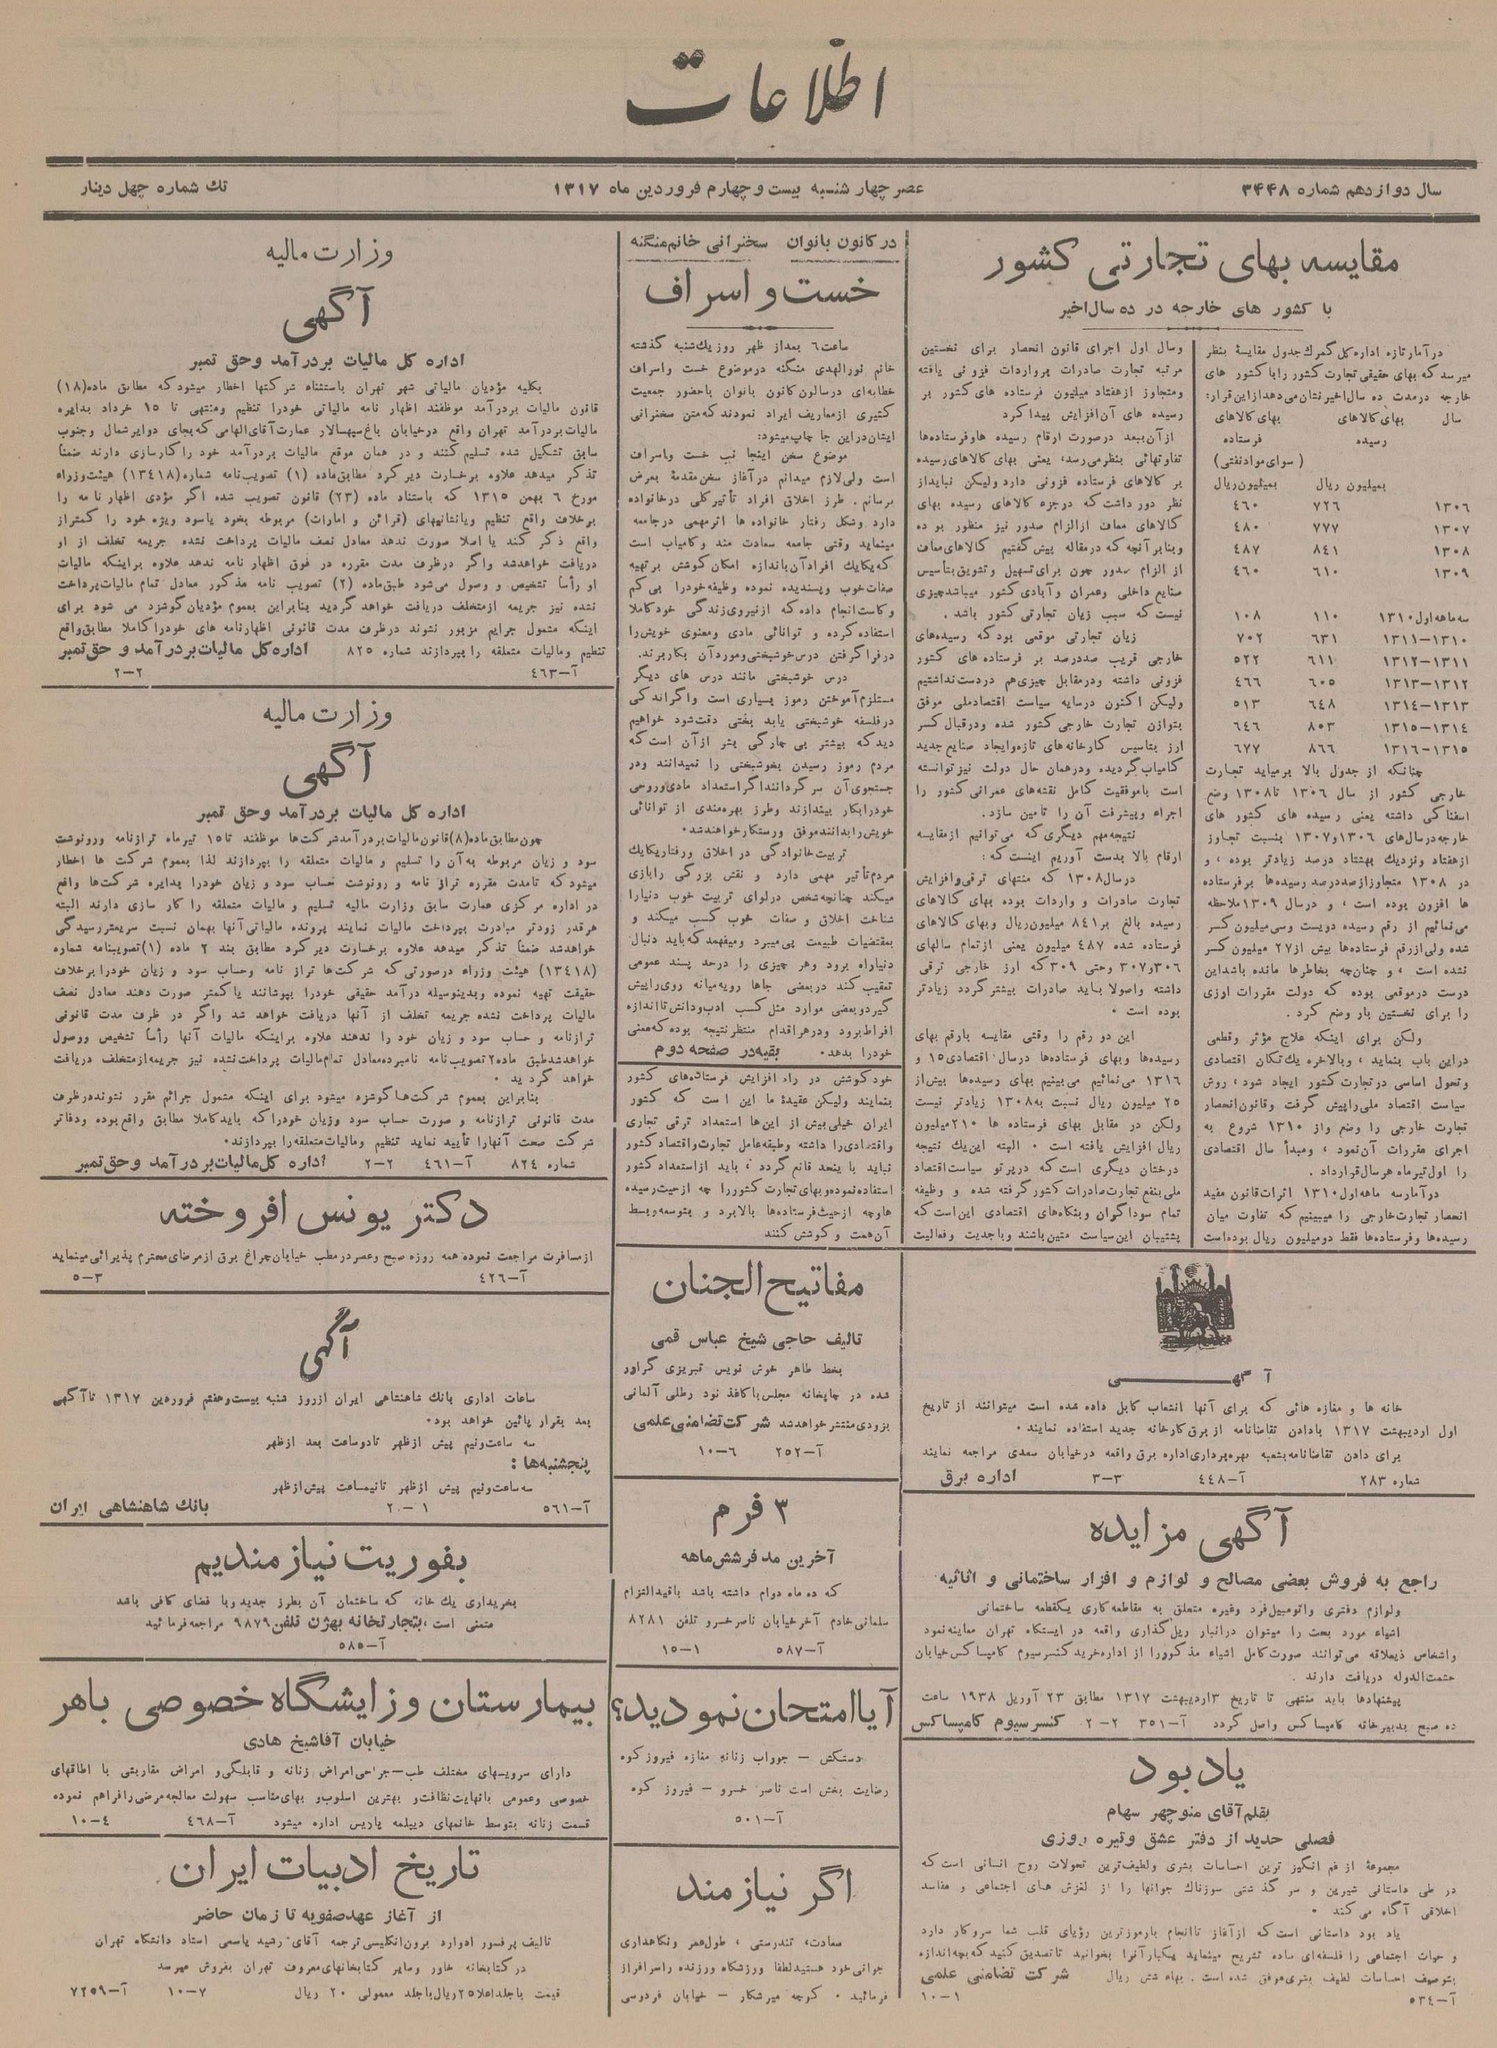 اطلاعات
سال دوازدهم شماره ۳۴۴۸
عصر چهارشنبه بیست و چهارم فروردین ماه ۱۳۱۷
تك شماره چهل دینار
مقایسه بهای تجارتی کشور
با کشور های خارجه در ده سال اخیر
در آمار تازه اداره کل گمرك جدول مقایسهٔ بنظر
میرسد که بهای حقیقی تجارت کشور را با کشور های
خارجه در مدت ده سال اخیر نشان می‌دهد از این قرار:
سال بهای کالاهای بهای کالاهای
رسیده فرستاده
(سوای مواد نفتی)
بمیلیون ریال بمیلیون ریال
۱۳۰۶ ۷۲۶ ۴۶۰
۱۳۰۷ ۷۷۷ ۴۸۰
۱۳۰۸ ۸۴۱ ۴۸۷
۱۳۰۹ ۶۱۰ ۴۶۰
سه ماهه اول ۱۳۱۰ ۱۱۰ ۱۰۸
۱۳۱۰–۱۳۱۱ ۶۳۱ ۷۰۲
۱۳۱۱–۱۳۱۲ ۶۱۱ ۵۲۲
۱۳۱۲–۱۳۱۳ ۶۰۵ ۴۶۶
۱۳۱۳–۱۳۱۴ ۶۴۸ ۵۱۳
۱۳۱۴–۱۳۱۵ ۸۰۳ ۶۴۶
۱۳۱۵–۱۳۱۶ ۸۶۶ ۶۷۷
چنانکه از جدول بالا بر میاید تجارت
خارجی کشور از سال ۱۳۰۶ تا ۱۳۰۸ وضع
اسفناکی داشته یعنی رسیده های کشور های
خارجه در سال‌های ۱۳۰۶ و ۱۳۰۷ بنسبت تجاوز
از هفتاد و نزدیك بهشتاد درصد زیادتر بوده ، و
در ۱۳۰۸ متجاوز از صد درصد رسیده‌ها بر فرستاده
ها افزون بوده است ، و درسال ۱۳۰۹ ملاحظه
می‌نمائیم از رقم رسیده دویست و سی میلیون کسر
شده ولی از رقم فرستاده‌ها بیش از ۲۷ میلیون کسر
نشده است ، و چنان‌چه بخاطرها مانده باشد این
درست در موقعی بوده که دولت مقررات ارزی
را برای نخستین بار وضع کرد.
ولکن برای اینکه علاج مؤثر و قطعی
در این باب بنماید ، و بالاخره یك تکان اقتصادی
و تحول اساسی در تجارت کشور ایجاد شود ، روش
سیاست اقتصاد ملی را پیش گرفت و قانون انحصار
تجارت خارجی را وضع و از ۱۳۱۰ شروع به
اجرای مقررات آن نمود ، و مبدأ سال اقتصادی
را اول تیر ماه هر سال قرار داد .
در آمار سه ماهه اول ۱۳۱۰ اثرات قانون مفید
انحصار تجارت خارجی را میبینیم که تفاوت میان
رسیده‌ها و فرستاده‌ها فقط دو میلیون ریال بوده است
و سال اول اجرای قانون انحصار برای نخستین
مرتبه تجارت صادرات بر واردات فزونی یافته
و متجاوز از هفتاد میلیون فرستاده های کشور بر
رسیده های آن افزایش پیدا کرد
از آن ببعد در صورت ارقام رسیده ها و فرستاده‌ها
تفاوتهائی بنظر می‌رسد، یعنی بهای کالاهای رسیده
بر کالاهای فرستاده فزونی دارد ولیکن نباید از
نظر دور داشت که در جزء کالاهای رسیده بهای
کالاهای معاف از الزام صدور نیز منظور بوده
و بنابر آنچه که در مقاله پیش گفتیم کالاهای معاف
از الزام صدور چون برای تسهیل و تشویق بتأسیس
صنایع داخلی و عمران و آبادی کشور میباشد چیزی
نیست که سبب زیان تجارتی کشور باشد .
زیان تجارتی موقعی بود که رسیده‌های
خارجی قریب صد درصد بر فرستاده های کشور
فزونی داشته و در مقابل چیزی هم در دست نداشتیم
ولیکن اکنون در سایه سیاست اقتصاد ملی موفق
بتوازن تجارت خارجی کشور شده و در قبال کسر
ارز بتاسیس کارخانه های تازه و ایجاد صنایع جدید
کامیاب گردیده و در همان حال دولت نیز توانسته
است با موفقیت کامل نقشه‌های عمرانی کشور را
اجراء و پیشرفت آن را تامین سازد.
نتیجه مهم دیگری که می‌توانیم از مقایسه
ارقام بالا بدست آوریم اینست که:
در سال ۱۳۰۸ که منتهای ترقی و افزایش
تجارت صادرات و واردات بوده بهای کالاهای
رسیده بالغ بر ۸۴۱ میلیون ریال و بهای کالاهای
فرستاده شده ۴۸۷ میلیون یعنی از تمام سالهای
۳۰۶ و ۳۰۷ و حتی ۳۰۹ که ارز خارجی ترقی
داشته و اصولا باید صادرات بیشتر گردد زیادتر
بوده است .
این دو رقم را وقتی مقایسه بارقم بهای
رسیده‌ها و بهای فرستاده‌ها در سال اقتصادی ۱۵ و
۱۳۱۶ می‌نمائیم می‌بینیم بهای رسیده‌ها بیش از
۲۵ میلیون ریال نسبت به ۱۳۰۸ زیادتر نیست
ولکن در مقابل بهای فرستاده ها ۲۱۰ میلیون
ریال افزایش یافته است . البته این یك نتیجه
درخشان دیگری است که در پرتو سیاست اقتصاد
ملی بنفع تجارت صادرات کشور گرفته شده و وظیفه
تمام سوداگران و بنگاه‌های اقتصادی این است که
پشتیبان این سیاست متین باشند و با جدیت و فعالیت
در کانون بانوان سخنرانی خانم منگنه
خست و اسراف
ساعت ۶ بعد از ظهر روز یك شنبه گذشته
خانم نورالهدی منگنه در موضوع خست و اسراف
خطابه‌ای در سالون کانون بانوان با حضور جمعیت
کثیری از معاریف ایراد نمودند که متن سخنرانی
ایشان در این جا چاپ میشود:
موضوع سخن اینجا نب خست و اسراف
است ولی لازم میدانم در آغاز سخن مقدمهٔ بعرض
برسانم . طرز اخلاق افراد تأثیر کلی در خانواده
دارد و شکل رفتار خانواده ها اثر مهمی در جامعه
مینماید وقتی جامعه سعادت مند و کامیاب است
که یکایك افراد آن باندازه امکان کوشش بر تهیه
صفات خوب و پسندیده نموده وظیفه خود را بی کم
و کاست انجام داده که از نیروی زندگی خود کاملا
استفاده کرده و توانائی مادی و معنوی خویش را
در فرا گرفتن درس خوشبختی و مورد آن بکار برند.
درس خوشبختی مانند درس های دیگر
مستلزم آموختن رموز بسیاری است و اگر اندکی
در فلسفه خوشبختی یا بد بختی دقت شود خواهیم
دید که بیشتر بی چارگی بشر از آن است که
مردم رموز رسیدن بخوشبختی را نمیدانند و در
جستجوی آن سرگردانند اگر استعداد مادی و روحی
خود را بکار بیندازند و طرز بهره‌مندی از توانائی
خویش را بدانند موفق و رستگار خواهند شد.
تربیت خانوادگی در اخلاق و رفتار یکایك
مردم تأثیر مهمی دارد و نقش بزرگی را بازی
میکند چنانچه شخص در لوای تربیت خوب دنیا را
شناخت اخلاق و صفات خوب کسب میکند و
بمقتضیات طبیعت پی میبرد و میفهمد که باید دنبال
دنیا راه برود و هر چیزی را در حد پسند عمومی
تعقیب کند در بعضی جاها رویه میانه روی را پیش
گیرد و بعضی موارد مثل کسب ادب و دانش تا اندازه
افراط برود و در هر اقدام منتظر نتیجه بوده که معنی
خود را بدهد. بقیه در صفحه دوم
خود کوشش در راه افزایش فرستاده‌های کشور
بنمایند ولیکن عقیدهٔ ما این است که کشور
ایران خیلی بیش از این‌ها استعداد ترقی تجاری
و اقتصادی را داشته و طبقه عامل تجارت و اقتصاد کشور
نباید با ینحد قانع گردد ، باید از استعداد کشور
استفاده نموده و بهای تجارت کشور را چه از حیث رسیده
ها و چه از حیث فرستاده‌ها بالا برد و بتوسعه و بسط
آن همت و کوشش کنند
وزارت مالیه
آگهی
اداره کل مالیات بر درآمد و حق تمبر
بکلیه مؤدیان مالیاتی شهر تهران باستثناء شرکتها اخطار میشود که مطابق ماده (۱۸)
قانون مالیات بر درآمد موظفند اظهار نامه مالیاتی خود را تنظیم و منتهی تا ۱۵ خرداد بدایره
مالیات بر درآمد تهران واقع در خیابان باغ سپهسالار عمارت آقای الهامی که بجای دوایر شمال و جنوب
سابق تشکیل شده تسلیم کنند و در همان موقع مالیات بر درآمد خود را کارسازی دارند ضمناً
تذکر میدهد علاوه بر خسارت دیر کرد مطابق ماده (۱) تصویب‌نامه شماره (۱۳۴۱۸) هیئت وزراء
مورخ ۶ بهمن ۱۳۱۵ که باستناد ماده (۲۳) قانون تصویب شده اگر مؤدی اظهار نامه را
برخلاف واقع تنظیم و یا نشانیهای (قرائن و امارات) مربوطه بخود یا سود ویژه خود را کمتر از
واقع ذکر کند یا اصلا صورت ندهد معادل نصف مالیات پرداخت نشده جریمه تخلف از او
دریافت خواهد شد و اگر در ظرف مدت مقرره در فوق اظهار نامه ندهد علاوه بر اینکه مالیات
او رأساً تشخیص و وصول می‌شود طبق ماده (۲) تصویب نامه مذکور معادل تمام مالیات پرداخت
نشده نیز جریمه از متخلف دریافت خواهد گردید بنابراین بعموم مؤدیان گوشزد می شود برای
اینکه مشمول جرایم مزبور نشوند در ظرف مدت قانونی اظهارنامه های خود را کاملا مطابق واقع
تنظیم و مالیات متعلقه را بپردازند شماره ۸۲۵ اداره کل مالیات بر درآمد و حق تمبر
آ–۴۶۳ ۲–۲
وزارت مالیه
آگهی
اداره کل مالیات بر درآمد و حق تمبر
چون مطابق ماده (۸) قانون مالیات بر درآمد شرکت‌ها موظفند تا ۱۵ تیر ماه ترازنامه و رونوشت
سود و زیان مربوطه به آن را تسلیم و مالیات متعلقه را بپردازند لذا بعموم شرکت ها اخطار
میشود که تا مدت مقرره تراز نامه و رونوشت حساب سود و زیان خود را بدایره شرکت‌ها واقع
در اداره مرکزی عمارت سابق وزارت مالیه تسلیم و مالیات متعلقه را کار سازی دارند البته
هر قدر زودتر مبادرت بپرداخت مالیات نمایند پرونده مالیاتی آنها بهمان نسبت سریعتر رسیدگی
خواهد شد ضمناً تذکر میدهد علاوه بر خسارت دیر کرد مطابق بند ۲ ماده (۱) تصویبنامه شماره
(۱۳۴۱۸) هیئت وزراء در صورتی که شرکت‌ها تراز نامه و حساب سود و زیان خود را برخلاف
حقیقت تهیه نموده و بدینوسیله درآمد حقیقی خود را بپوشانند یا کمتر صورت دهند معادل نصف
مالیات پرداخت نشده جریمه تخلف از آنها دریافت خواهد شد و اگر در ظرف مدت قانونی
ترازنامه و حساب سود و زیان خود را ندهند علاوه بر اینکه مالیات آنها رأساً تشخیص و وصول
خواهد شد طبق ماده ۲ تصویب نامه نامبرده معادل تمام مالیات پرداخت نشده نیز جریمه از متخلف دریافت
خواهد گردید .
بنابراین بعموم شرکت‌ها گوشزد میشود برای اینکه مشمول جرائم مقرر نشوند در ظرف
مدت قانونی ترازنامه و صورت حساب سود و زیان خود را که باید کاملا مطابق واقع بوده و دفاتر
شرکت صحت آنها را تأیید نماید تنظیم و مالیات متعلقه را بپردازند.
شماره ۸۲۴ آ–۴۶۱ ۲–۲ اداره کل مالیات بر درآمد و حق تمبر
دکتر یونس افروخته
از مسافرت مراجعت نموده همه روزه صبح و عصر در مطب خیابان چراغ برق از مرضای محترم پذیرائی مینماید
آ–۴۲۶ ۳–۵
آگهی
ساعات اداری بانك شاهنشاهی ایران از روز شنبه بیست و هفتم فروردین ۱۳۱۷ تا آگهی
بعد بقرار پائین خواهد بود.
سه ساعت و نیم پیش از ظهر تا دو ساعت بعد از ظهر
پنجشنبه‌ها :
سه ساعت و نیم پیش از ظهر تا نیمساعت پیش از ظهر
آ–۵۶۱ ۱–۲۰ بانك شاهنشاهی ایران
بفوریت نیازمندیم
بخریداری یك خانه که ساختمان آن بطرز جدید و با فضای کافی باشد
متمنی است، بتجارتخانه بهژن تلفن ۹۸۷۹ مراجعه فرمائید
آ–۵۸۵
بیمارستان و زایشگاه خصوصی باهر
خیابان آقاشیخ هادی
دارای سرویسهای مختلف طب–جراحی امراض زنانه و قابلگی و امراض مقاربتی با اطاقهای
خصوصی و عمومی با نهایت نظافت و بهترین اسلوب و بهای مناسب سهولت معالجه مرضی را فراهم نموده
قسمت زنانه بتوسط خانمهای دیپلمه پاریس اداره میشود آ–۴۶۸ ۴–۱۰
تاریخ ادبیات ایران
از آغاز عهد صفویه تا زمان حاضر
تالیف پرفسور ادوارد برون انگلیسی ترجمه آقای رشید یاسمی استاد دانشگاه تهران
در کتابخانه خاور و سایر کتابخانهای معروف تهران بفروش میرسد
قیمت با جلد اعلا ۲۵ ریال با جلد معمولی ۲۰ ریال ۷–۱۰ آ–۷۲۵۹
مفاتیح الجنان
تالیف حاجی شیخ عباس قمی
بخط طاهر خوش نویس تبریزی گراور
شده در چاپخانه مجلس با کاغذ نود رطلی آلمانی
بزودی منتشر خواهد شد شرکت تضامنی علمی
آ–۲۵۲ ۶–۱۰
۳ فرم
آخرین مد فرشش ماهه
که ده ماه دوام داشته باشد باقید التزام
سلمانی خادم آخر خیابان ناصر خسرو تلفن ۸۲۸۱
آ–۵۸۷ ۱–۱۵
آیا امتحان نمودید؟
دستکش – جوراب زنانه مغازه فیروز کوه
رضایت بخش است ناصر خسرو – فیروز کوه
آ–۵۰۱
اگر نیازمند
سعادت، تندرستی ، طول عمر و نگاهداری
جوانی خود هستید لطفا ورزشگاه ورزنده را سرافراز
فرمائید . کوچه میر شکار – خیابان فردوسی
آگهــی
خانه ها و مغازه هائی که برای آنها انشعاب کابل داده شده است میتوانند از تاریخ
اول اردیبهشت ۱۳۱۷ با دادن تقاضانامه از برق کارخانه جدید استفاده نمایند .
برای دادن تقاضانامه بشعبه بهره‌برداری اداره برق واقعه در خیابان سعدی مراجعه نمایند
شماره ۲۸۳ آ–۴۴۸ ۳–۳ اداره برق
آگهی مزایده
راجع به فروش بعضی مصالح و لوازم و افزار ساختمانی و اثاثیه
ولوازم دفتری و اتومبیل فرد وغیره متعلق به مقاطعه کاری یکقطعه ساختمانی
اشیاء مورد بحث را میتوان در انبار ریل‌گذاری واقعه در ایستگاه تهران معاینه نمود
واشخاص ذیعلاقه می‌توانند صورت کامل اشیاء مذکور را از اداره خرید کنسرسیوم کامپساکس خیابان
حشمت‌الدوله دریافت دارند .
پیشنهادها باید منتهی تا تاریخ ۳ اردیبهشت ۱۳۱۷ مطابق ۲۳ آوریل ۱۹۳۸ ساعت
ده صبح بدبیرخانه کامپساکس واصل گردد آ–۳۵۱ ۲–۲ کنسرسیوم کامپساکس
یادبود
بقلم آقای منوچهر سهام
فصلی جدید از دفتر عشق و تیره روزی
مجموعهٔ از غم انگیز ترین احساسات بشری و لطیف ترین تحولات روح انسانی است که
در طی داستانی شیرین و سر گذشتی سوزناك جوانها را از لغزش های اجتماعی و مفاسد
اخلاقی آگاه می کند .
یاد بود داستانی است که از آغاز تا انجام با رموزترین رؤیای قلب شما سر و کار دارد
و حیات اجتماعی را فلسفه‌ای ساده تشریح مینماید یکبار آنرا بخوانید تا تصدیق کنید که بچه اندازه
بتوصیف احساسات لطیف بشری موفق شده است . بهاء شش ریال شرکت تضامنی علمی
آ–۵۳۴ ۱–۱۰